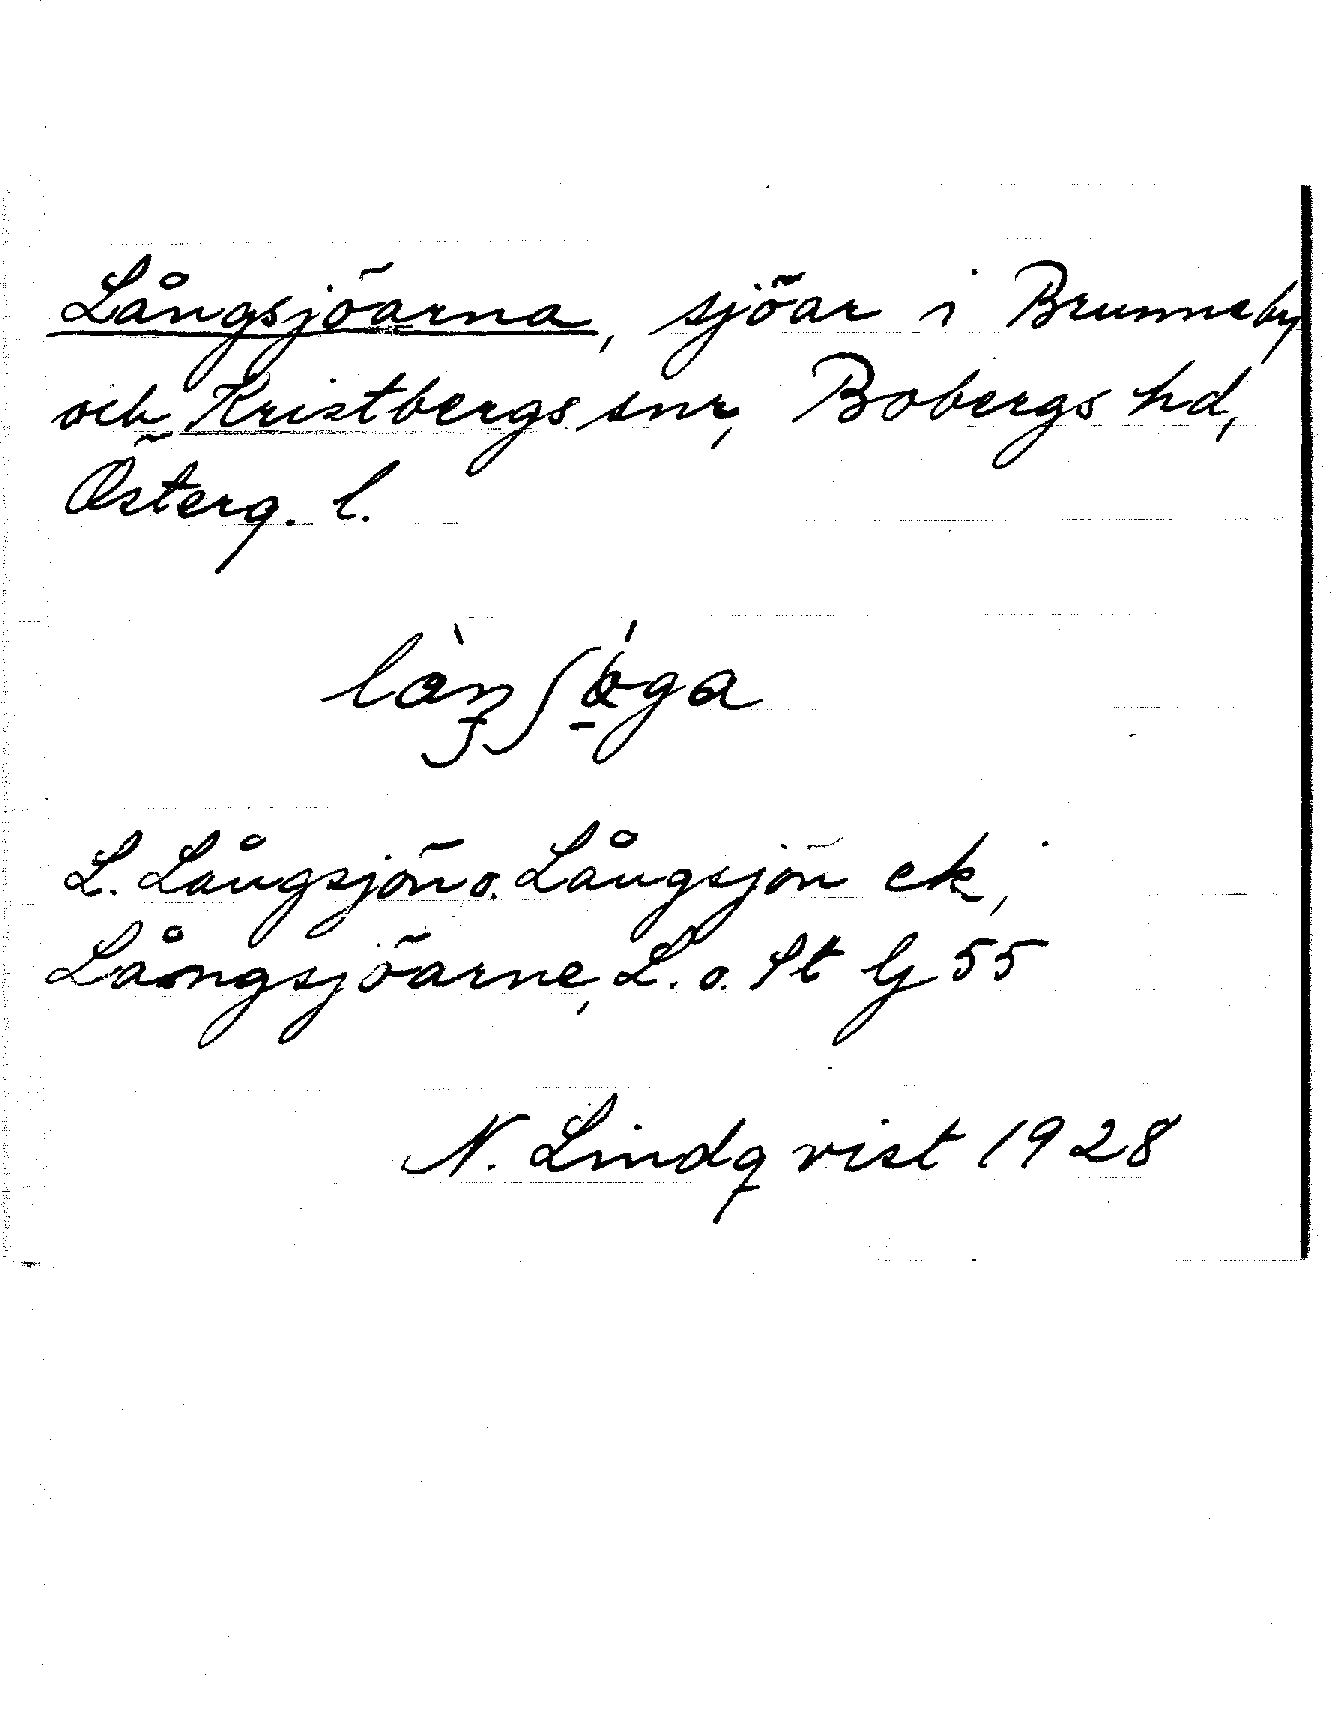 Långsjöarna, sjöar i Brunneby
och Kristbergs snr, Bobergs hd,
Österg. l.
L. Långsjön o. Långsjön ek,
Långsjöarne, L. o. St GJ 55
N. Lindqvist 1928